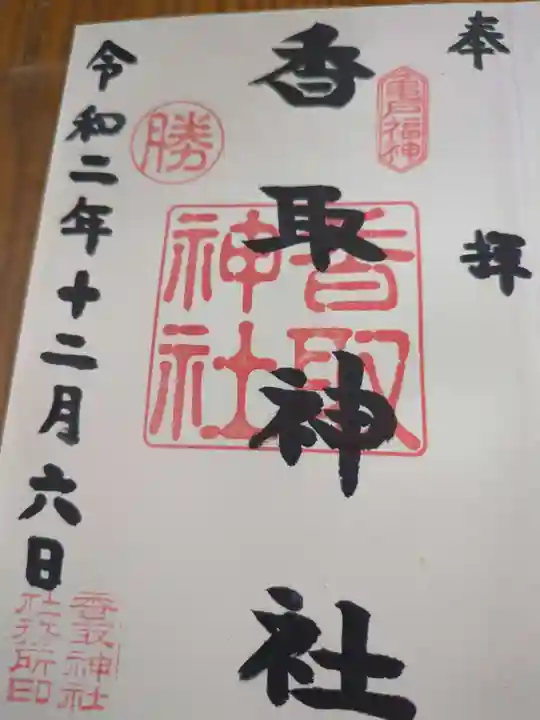 奉拝
亀戸福神
香取神社
香取神社
勝
令和二年十二月六日
香取神社
社務所印